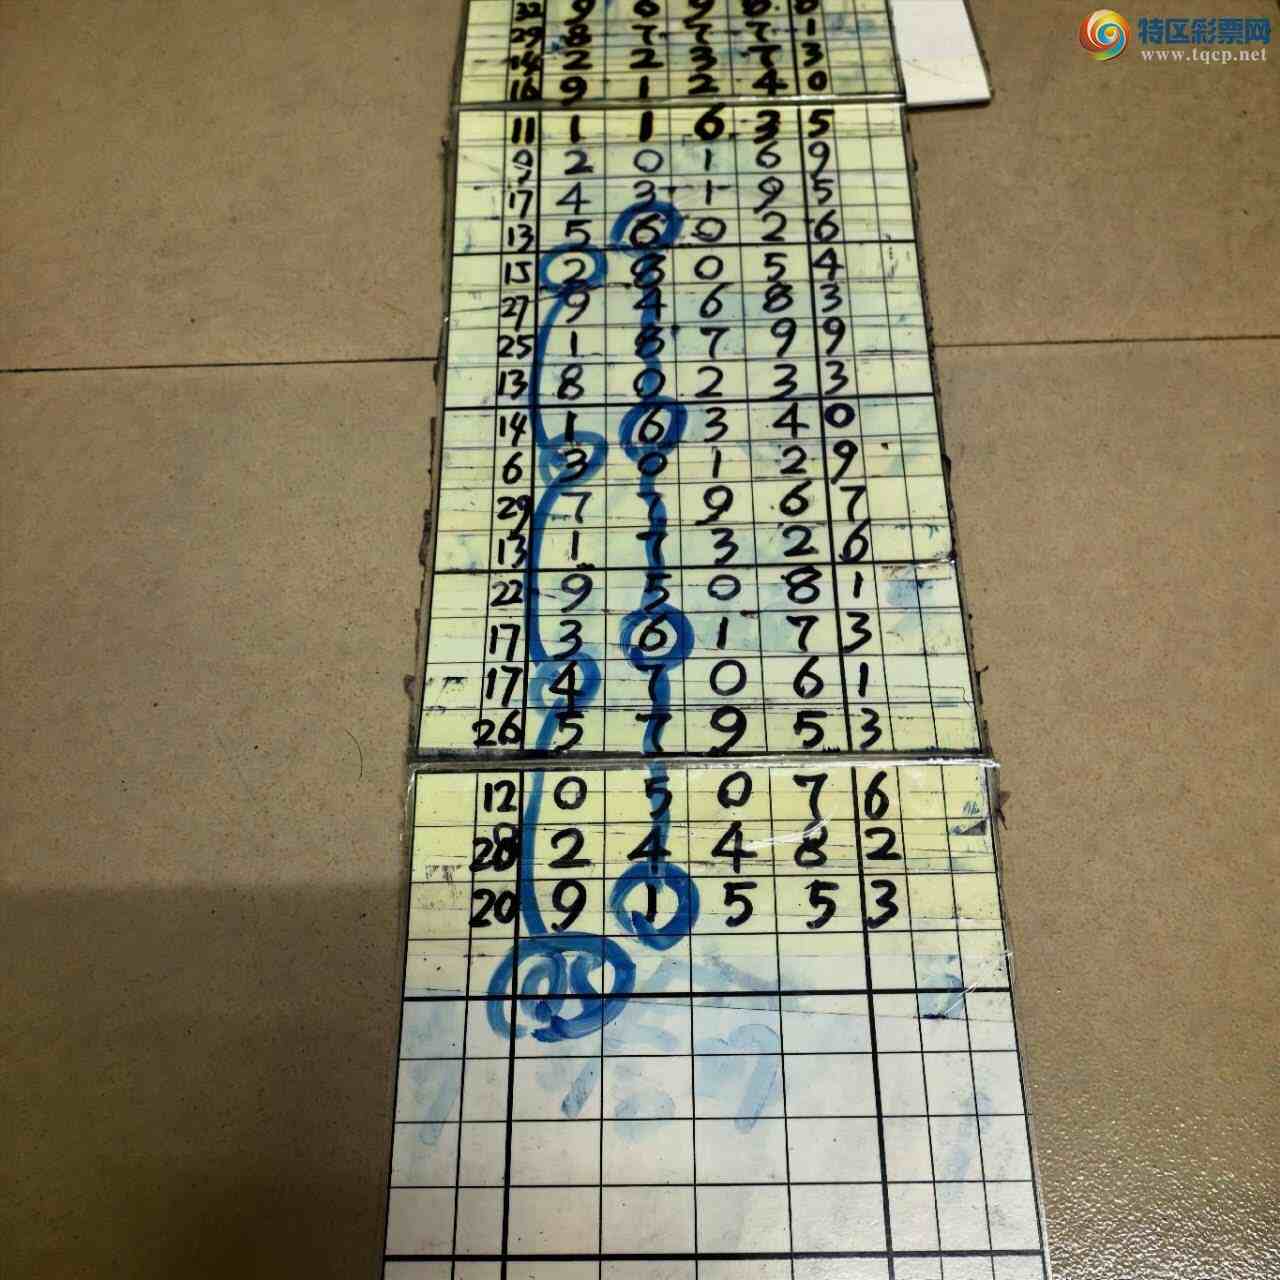 特区彩票网
www.tqcp.net
32 9 0 9
29 8 7 7 7 1
14 2 2 3 7 3
16 9 1 2 4 0
11 1 1 6 3 5
9 2 0 1 6 9
17 4 3 1 9 5
13 5 6 0 2 6
15 2 8 0 5 4
27 9 4 6 8 3
25 1 8 7 9 9
13 8 0 2 3 3
14 1 6 3 4 0
6 3 0 1 2 9
29 7 7 9 6 7
13 1 7 3 2 6
22 9 5 0 8 1
17 3 6 1 7 3
17 4 7 0 6 1
26 5 7 9 5 3
12 0 5 0 7 6
28 2 4 4 8 2
20 9 1 5 5 3
05